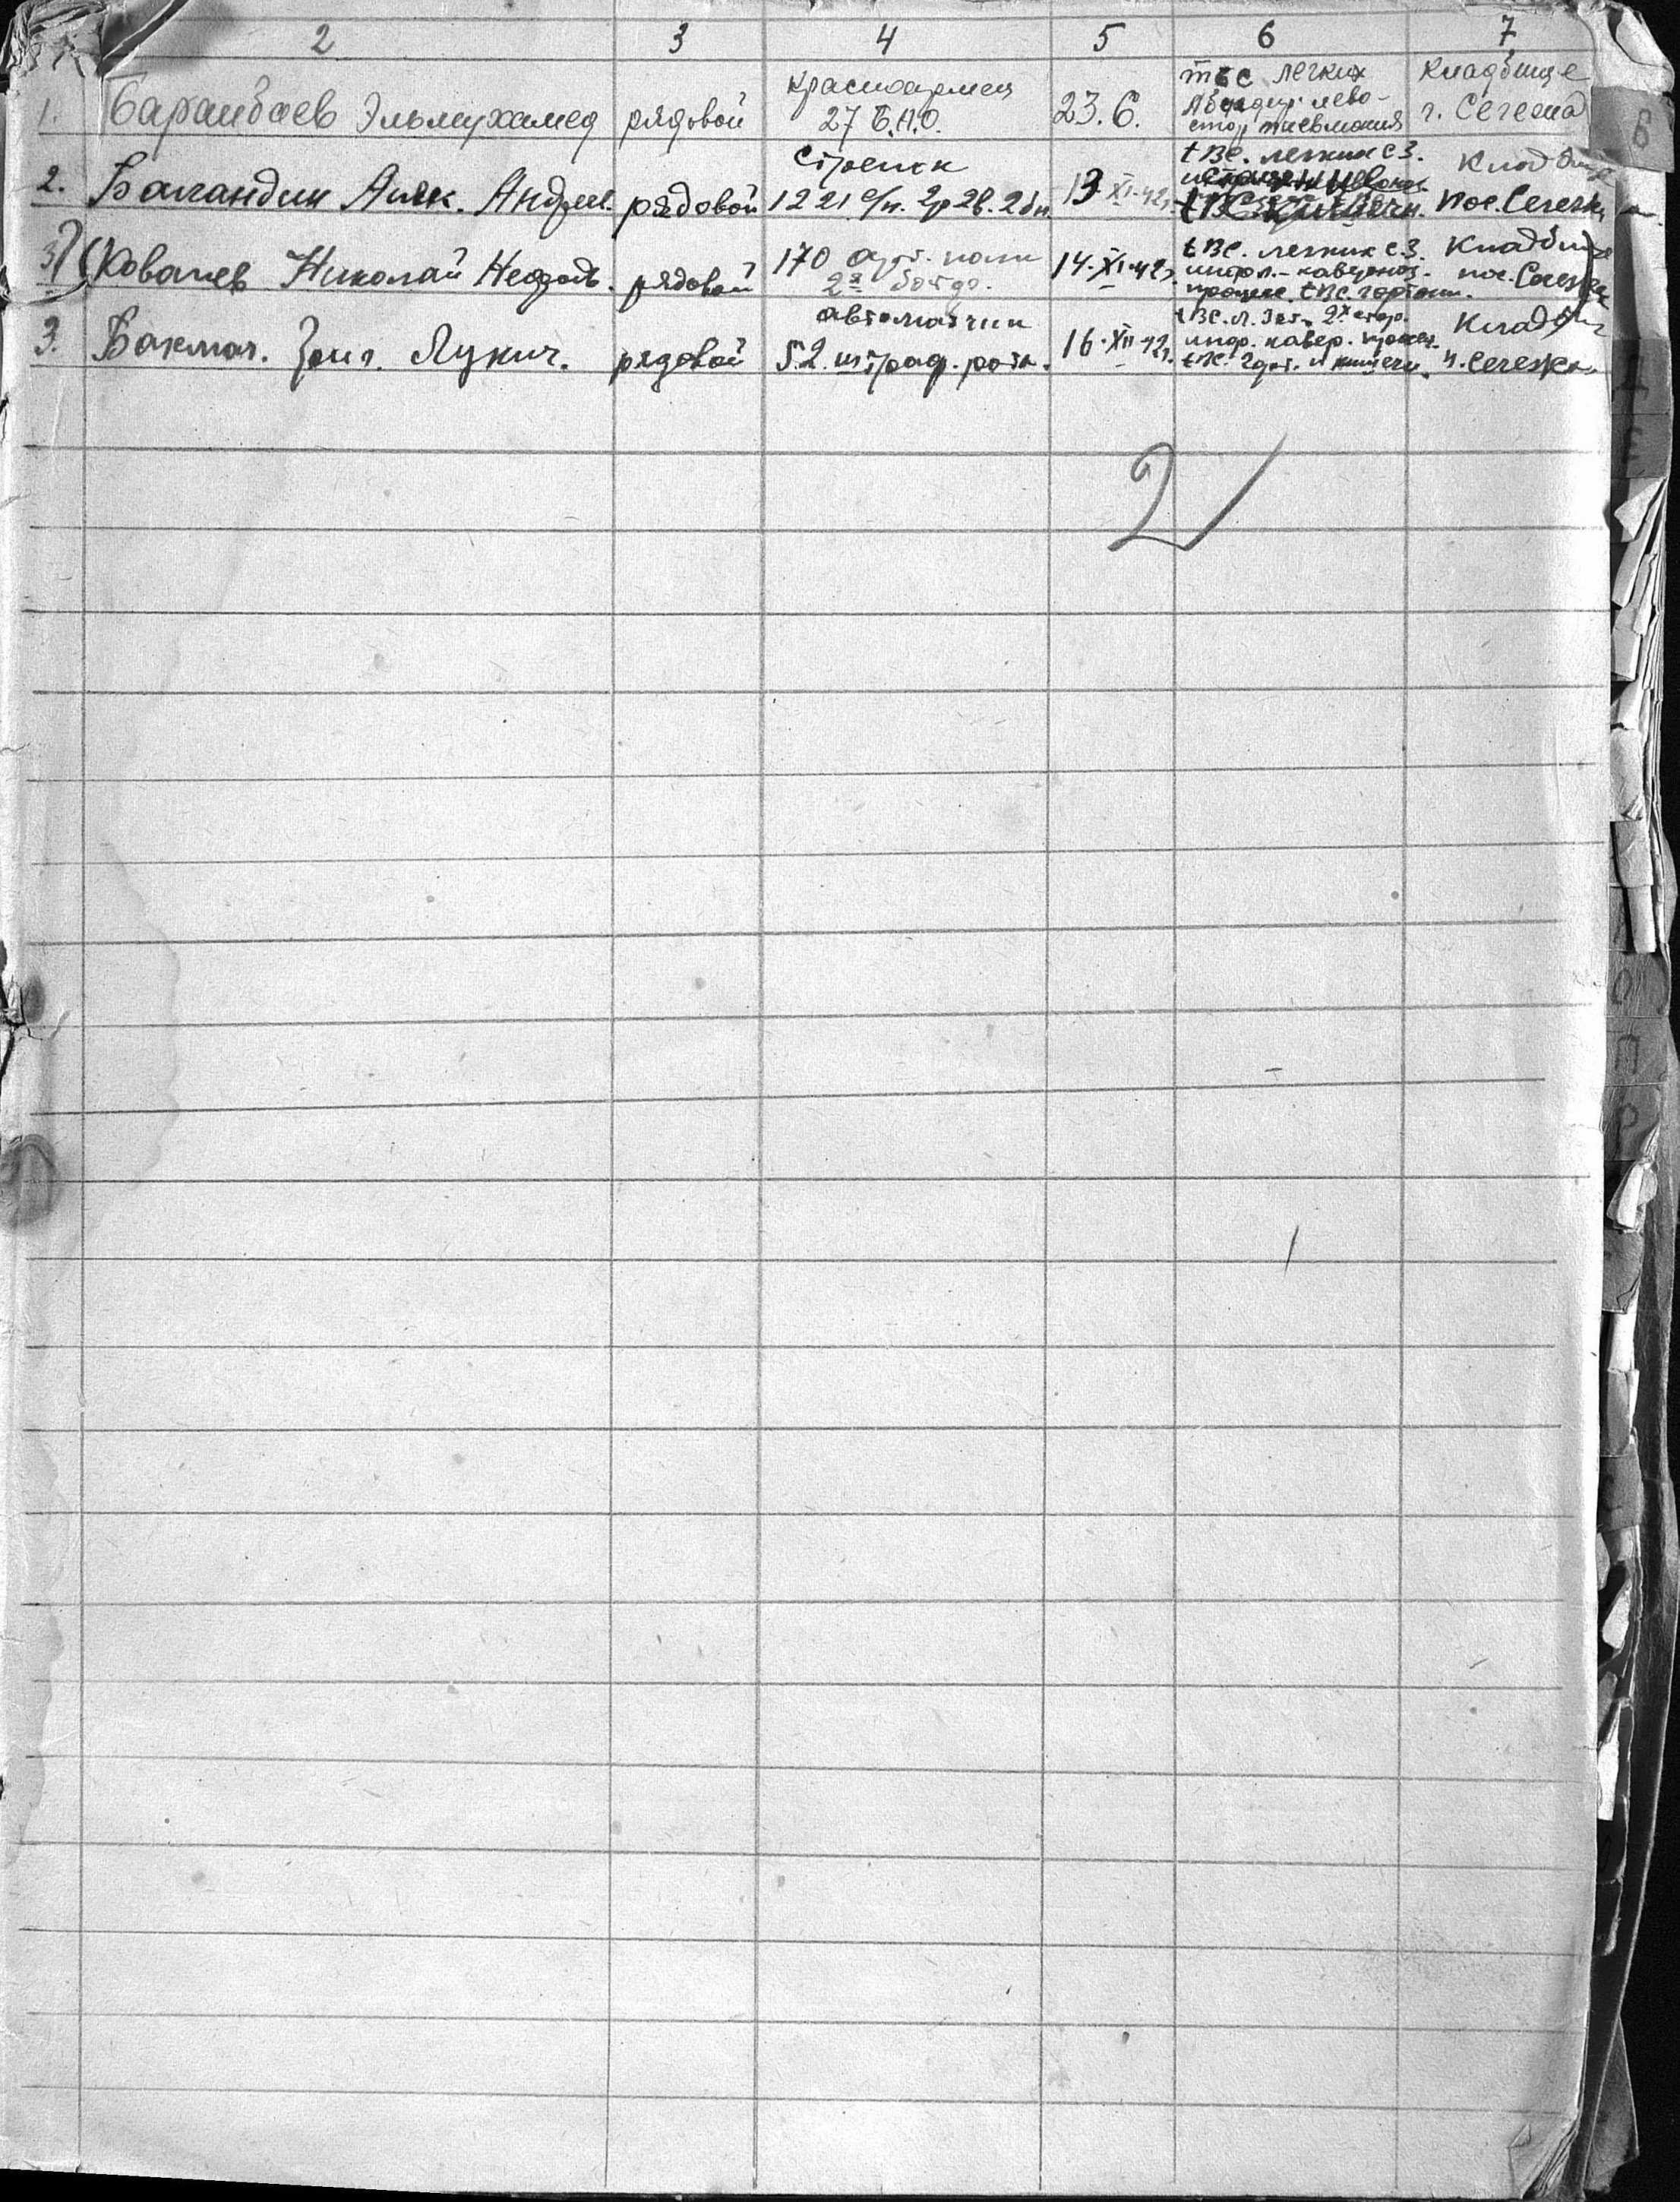 2 3 4 5 6 7
1. Бараибаев Эльмухамед рядовой
красноармеец
27 Б.А.О.
23.6.
твс легких
лево-
кладбище
г. Сегежа
2. Баландин Алек. Андреев. рядовой
стрелок
1221 с/п. 2р 2в. 2бн.
13 XI-42г.
tвс. легких с 3.
Кладбище
пос. Сегежа
3) (Ковалев Николай рядовой
170 арт. полк
14-XI-42г.
tвс. легких с 3.
инфл.-каверноз.
процесс. tвс. гортани.
Кладбище
пос. Сегежа)
3. Бакмач. Григ. Лукич. рядовой
автоматчик
52 штраф. рота.
16-XII-42г.
инф. кавер. процес.
tвс. горт. и кишечн.
Кладбищ
п. Сегежа
2
Б
Е
О
П
Р